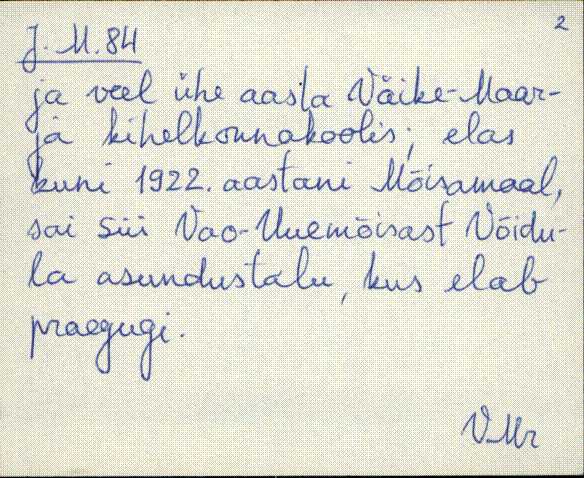 2
J. M. 84
ja veel ühe aasta Väike-Maar-
ja kihelkonnakoolis; elas
kuni 1922. aastani Mõisamaal,
sai siis Vao-Uuemõisast Võidu-
la asundustalu, kus elab
praegugi.
V.Mr